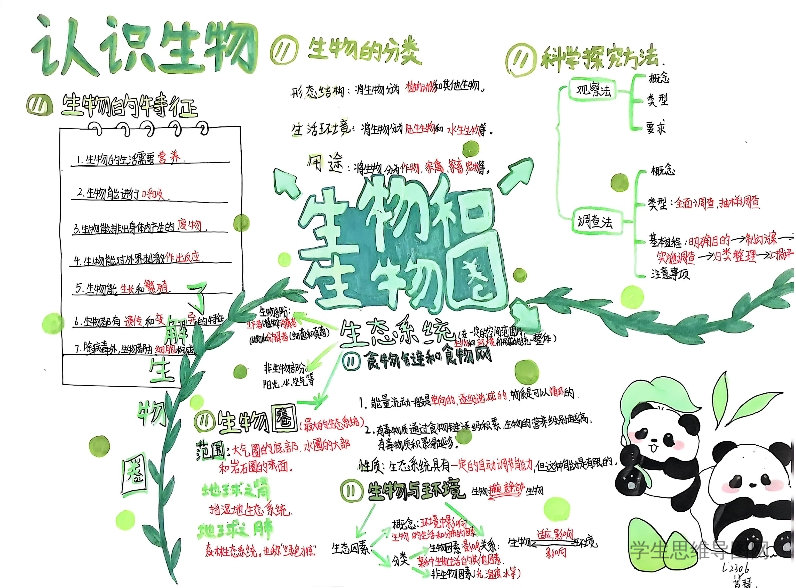 认识生物
生物的特征
1.生物的生活需要营养.
2.生物能进行呼吸.
3.生物能排出身体内产生的废物.
4.生物能对外界刺激作出反应
5.生物能生长和繁殖.
6.生物都有遗传和变异的特征
7.除病毒外,生物都由细胞构成
生物的分类
形态结构:将生物分为植物动物和其他生物.
生活环境:将生物分为陆生生物和水生生物等.
用途:将生物分为作物,家禽,家畜,宠物等.
科学探究方法.
观察法
概念
类型
要求
调查法
概念
类型:全面调查,抽样调查
基本过程:明确目的→制定方案→
实施调查→分类整理→
注意事项
生物和
生物圈
了解生物圈
生态系统
食物链和食物网
生物部分:
非生物部分:
阳光,水,空气等
1.能量流动一般是单向的,逐级递减的.物质是可以循环的.
2.有毒物质通过食物链逐渐积累,生物的营养级别越高,
有毒物质积累越多.
性质:生态系统具有一定的自动调节能力,但这种能力是有限的.
生物圈(最大的生态系统)
范围:大气圈的底部,水圈的大部
和岩石圈的表面.
地球之肾
指湿地生态系统.
地球之肺
森林生态系统,也称"绿色水库"
生物与环境
生态因素
概念:环境中影响
生物的生活和分布的因素
分类
生物因素
非生物因素(光,温度,水等)
生物
适应 影响
影响
环境
学生思维导图网